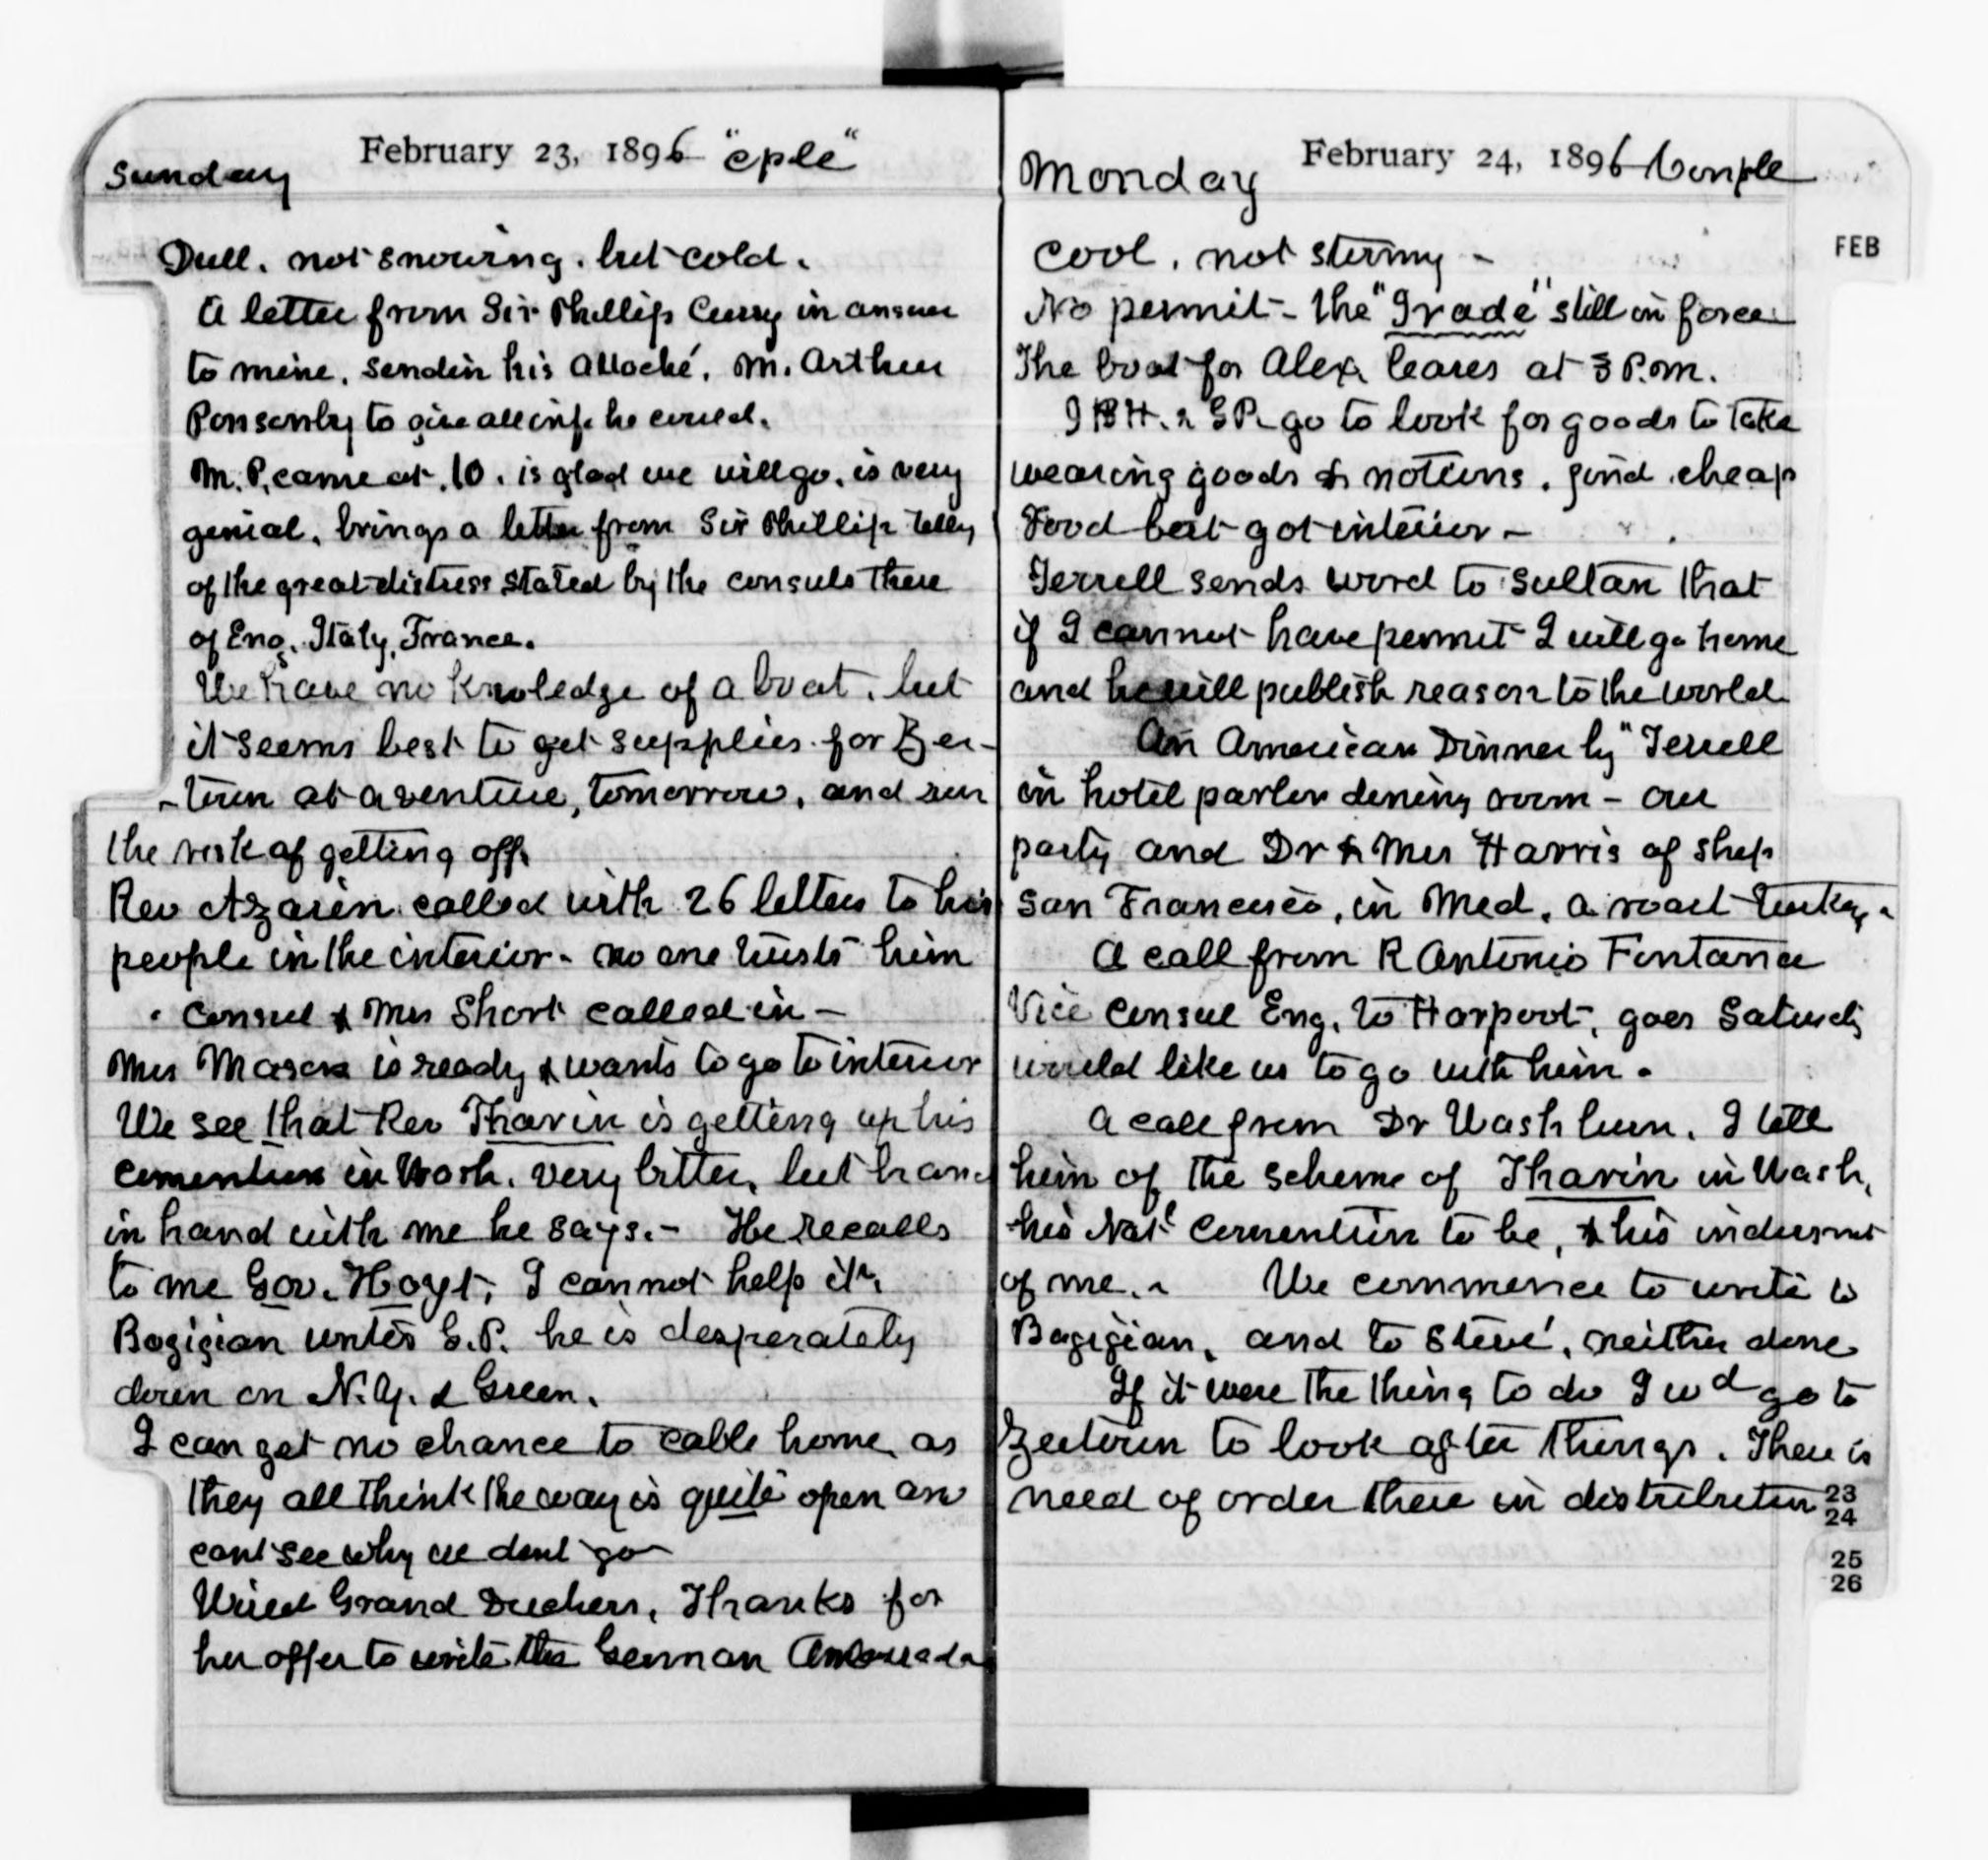 February 23, 1896 "cple"
Sunday
Dull. not snowing. but cold.
A letter from Sir Phillip Curry in answer
to mine. sendin his Attaché. M. Arthur
Ponsonby to give all inf. he could.
M. P. came at 10. is glad we will go. is very
genial. brings a letter from Sir Phillip tellg
of the great distress stated by the consuls there
of Eng. Italy, France.
We have no knowledge of a boat. but
it seems best to get supplies for Zei-
-toun at aventure, tomorrow. and run
the risk of getting off.
Rev Azarin called with 26 letters to his
people in the interior - no one trusts him
Consul & Mrs Short called in -
Mrs Mason is ready & wants to go to interior
We see that Rev Thavin is getting up his
convention in Wash. very bitter, but hand
in hand with me he says. - He recalls
to me Gov. Hoyt, I cannot help it.
Bagigian writes G.P. he is desperately
down on N.Y. & Green.
I can get no chance to cable home as
they all think the way is quite open an
cant see why we dont go
Wried Grand Duchess, Thanks for
her offer to write the German Ambassada
February 24, 1896 Conple
Monday
FEB
Cool, not stormy -
No permit - the "Irade" still in force
The boat for Alex leaves at 3 P.m.
I B H. & G P. go to look for goods to take
wearing goods & notions. find cheap
Food best got interior -
Terrell sends word to Sultan that
if I cannot have permit I will go home
and he will publish reason to the world
An American Dinner by" Terrell
in hotel parlor dining room - our
party and Dr & Mrs Harris of ship
San Francisco, in Med. a roast turkey.
A call from R Antonio Fontana
Vice Consul Eng. to Harpoot, goes Saturdy
would like us to go with him.
A call from Dr Washburn. I tell
him of the scheme of Thavin in Wash,
his Natl Convention to be, & his indorsmt
of me. - We commence to write to
Bagigian, and to Steve', neither done
If it were the thing to do I wd go to
Zeitoun to look after things. There is
need of order there in distribution
23
24
25
26